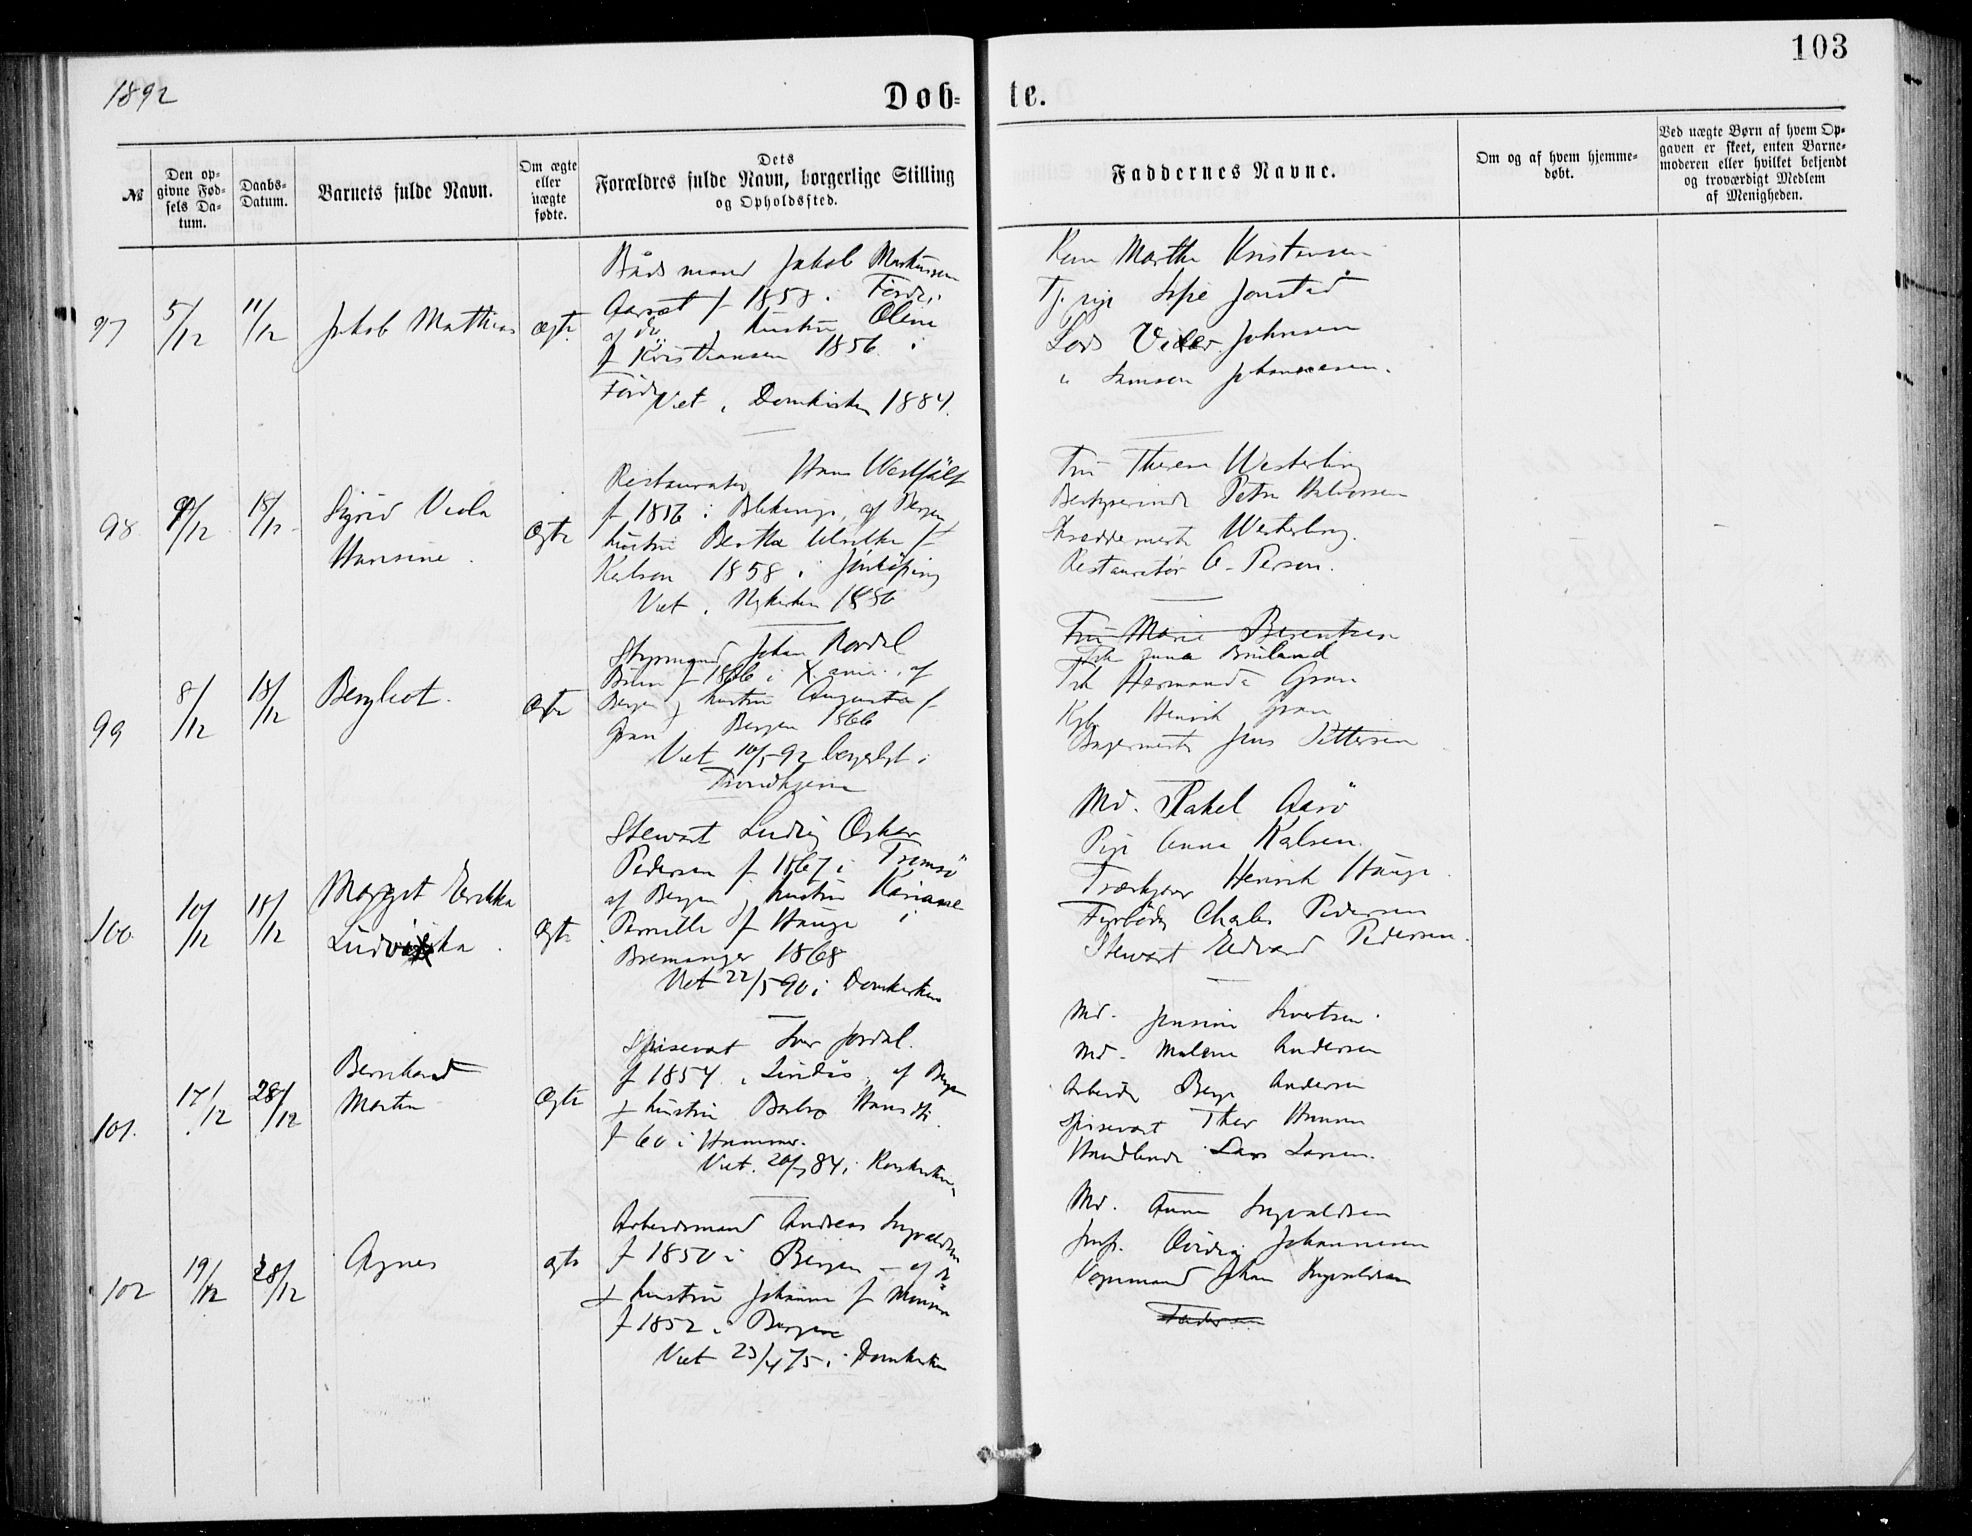 103
1892
Døb- te.
№
Den opgivne Fødsels Datum.
Daabs-Datum.
Barnets fulde Navn.
Om ægte eller uægte fødte.
Dets Forældres fulde Navn, borgerlige Stilling og Opholdssted.
Faddernes Navne.
Om og af hvem hjemmedøbt.
Ved uægte Børn af hvem Opgaven er skeet, enten Barnemoderen eller hvilket bekjendt og troværdigt Medlem af Menigheden.
97 5/12 11/12 Jakob Mathias ægte
Jakob Markussen
f 1858 i Førde,
hustru Oline
f Kristiansen 1856 i
Førde
Viet i Domkirken 1884.
Marthe Kristensen
Johnsen
Samson Johannesen.
98 /12 18/12 Sigrid Viola
Hansine.
ægte
Restauratør Hans Westfält
f 1856 i Blekinge, af Bergen
hustru Bertha Ulrikke f
Karlson 1858 i Jönköping
Viet i Nykirken 1886
Fru Therese Westerling
Bestyrerinde Petra Halvorsen
Skreddermester Westerling.
Restauratør A. Person.
99 8/12 18/12 Bergliot. ægte
Styrmand Johan Nordal
f 1866 i Xania, af
Bergen, hustru Augusta f
Gran Bergen 1866
Viet 10/5 92 borgerligt i
Trondhjem
Fru Marie Berentsen
Frk Hermanda Gran
Henrik Gran
Bagermester Jens Pettersen
100 10/12 18/12 Margit Erikka
Ludvikka.
ægte
Stewart Ludvig Oskar
Pedersen f. 1867 i Tromsö
af Bergen, hustru Kariane
Pernille f Hauge i
Bremanger 1868
Viet 22/5 90 i Domkirken
Md. Rakel Aasö
Pige Anna Karlsen.
Henrik Hauge.
Fyrböder Charles Pedersen
Stewart Edvard Pedersen.
101. 17/12 28/12 Bernhard
Martin
ægte
Spisevært Iver Jordal.
f 1854 i Lindås, af Bergen
hustru Barbro Hansdtr
f 60 i Hammer.
Viet. 84 i Korskirken
Md. Jensine Sivertsen.
Md. Malene Andersen
Arbeider Andersen
Spisevært Hansen
Handlende Lars Larsen.
102 19/12 28/12 Agnes ægte
Arbeidsmand Andreas Ingvaldsen
f 1850 i Bergen
hustru Johanne f Monsen
f 1852 i Bergen
Viet 23/4 75 i Domkirken
Md. Anna Ingvaldsen
Johannesen
Vognmand Johan Ingvaldsen